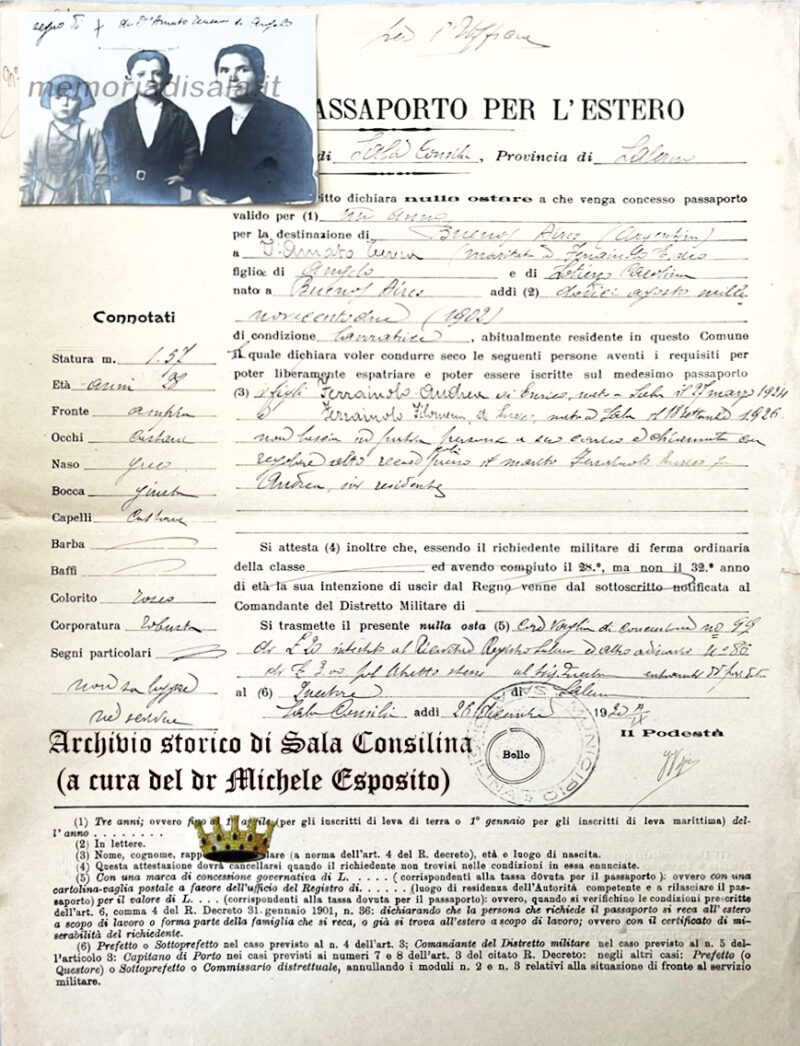 segno di + di D'Amato Teresa di Angelo
memoriadisala.it
per l'Uffici
ASSAPORTO PER L'ESTERO
di Sala Consilina, Provincia di Salerno
ritto dichiara nulla ostare a che venga concesso passaporto
valido per (1) un anno
per la destinazione di Buenos Aires (Argentina)
a D'Amato Teresa (maritata a Ferraiuolo Enrico
figlia di Angelo e di Caterina
nato a Buenos Aires addì (2) dodici agosto mille
novecentodue (1902)
di condizione lavoratrice, abitualmente residente in questo Comune
Il quale dichiara voler condurre seco le seguenti persone aventi i requisiti per
poter liberamente espatriare e poter essere iscritte sul medesimo passaporto
(3) i figli Ferraiuolo Andrea di Enrico, nato a Sala il 27 marzo 1924
e Ferraiuolo Filomena di Enrico, nata a Sala il 18 1926
non lascia in patria persona a suo carico e
presso il marito Ferraiuolo Enrico fu
Andrea, ivi residente
Connotati
Statura m. 1.57
Età anni 28
Fronte ampia
Occhi castani
Naso greco
Bocca giusta
Capelli castani
Barba
Baffi
Colorito roseo
Corporatura robusta
Segni particolari
non sa leggere
nè scrivere
Si attesta (4) inoltre che, essendo il richiedente militare di ferma ordinaria
della classe ed avendo compiuto il 28.°, ma non il 32.° anno
di età la sua intenzione di uscir dal Regno venne dal sottoscritto notificata al
Comandante del Distretto Militare di
Si trasmette il presente nulla osta (5) con Vaglia di
di £ 20 intestato al Registro Salerno
di £
al (6) Questore di Salerno
Sala Consilina addì 26 dicembre 19
Il Podestà
Bollo
MUNICIPIO
Archivio storico di Sala Consilina
(a cura del dr Michele Esposito)
(1) Tre anni; ovvero fino al 1° aprile (per gli inscritti di leva di terra o 1° gennaio per gli inscritti di leva marittima) del-
l'anno . . . . . . . .
(2) In lettere.
(3) Nome, cognome, rapp lare (a norma dell'art. 4 del R. decreto), età e luogo di nascita.
(4) Questa attestazione dovrà cancellarsi quando il richiedente non trovisi nelle condizioni in essa enunciate.
(5) Con una marca di concessione governativa di L. . . . . ( corrispondenti alla tassa dovuta per il passaporto ): ovvero con una
cartolina-vaglia postale a favore dell'ufficio del Registro di. . . . . . (luogo di residenza dell'Autorità competente e a rilasciare il pas-
saporto) per il valore di L. . . . . (corrispondenti alla tassa dovuta per il passaporto): ovvero, quando si verifichino le condizioni prescritte
dell'art. 6, comma 4 del R. Decreto 31 gennaio 1901, n. 36: dichiarando che la persona che richiede il passaporto si reca all'estero
a scopo di lavoro o forma parte della famiglia che si reca, o già si trova all'estero a scopo di lavoro; ovvero con il certificato di mi-
serabilità del richiedente.
(6) Prefetto o Sottoprefetto nel caso previsto al n. 4 dell'art. 3; Comandante del Distretto militare nel caso previsto al n. 5 del-
l'articolo 3: Capitano di Porto nei casi previsti ai numeri 7 e 8 dell'art. 3 del citato R. Decreto: negli altri casi: Prefetto (o
Questore) o Sottoprefetto o Commissario distrettuale, annullando i moduli n. 2 e n. 3 relativi alla situazione di fronte al servizio
militare.